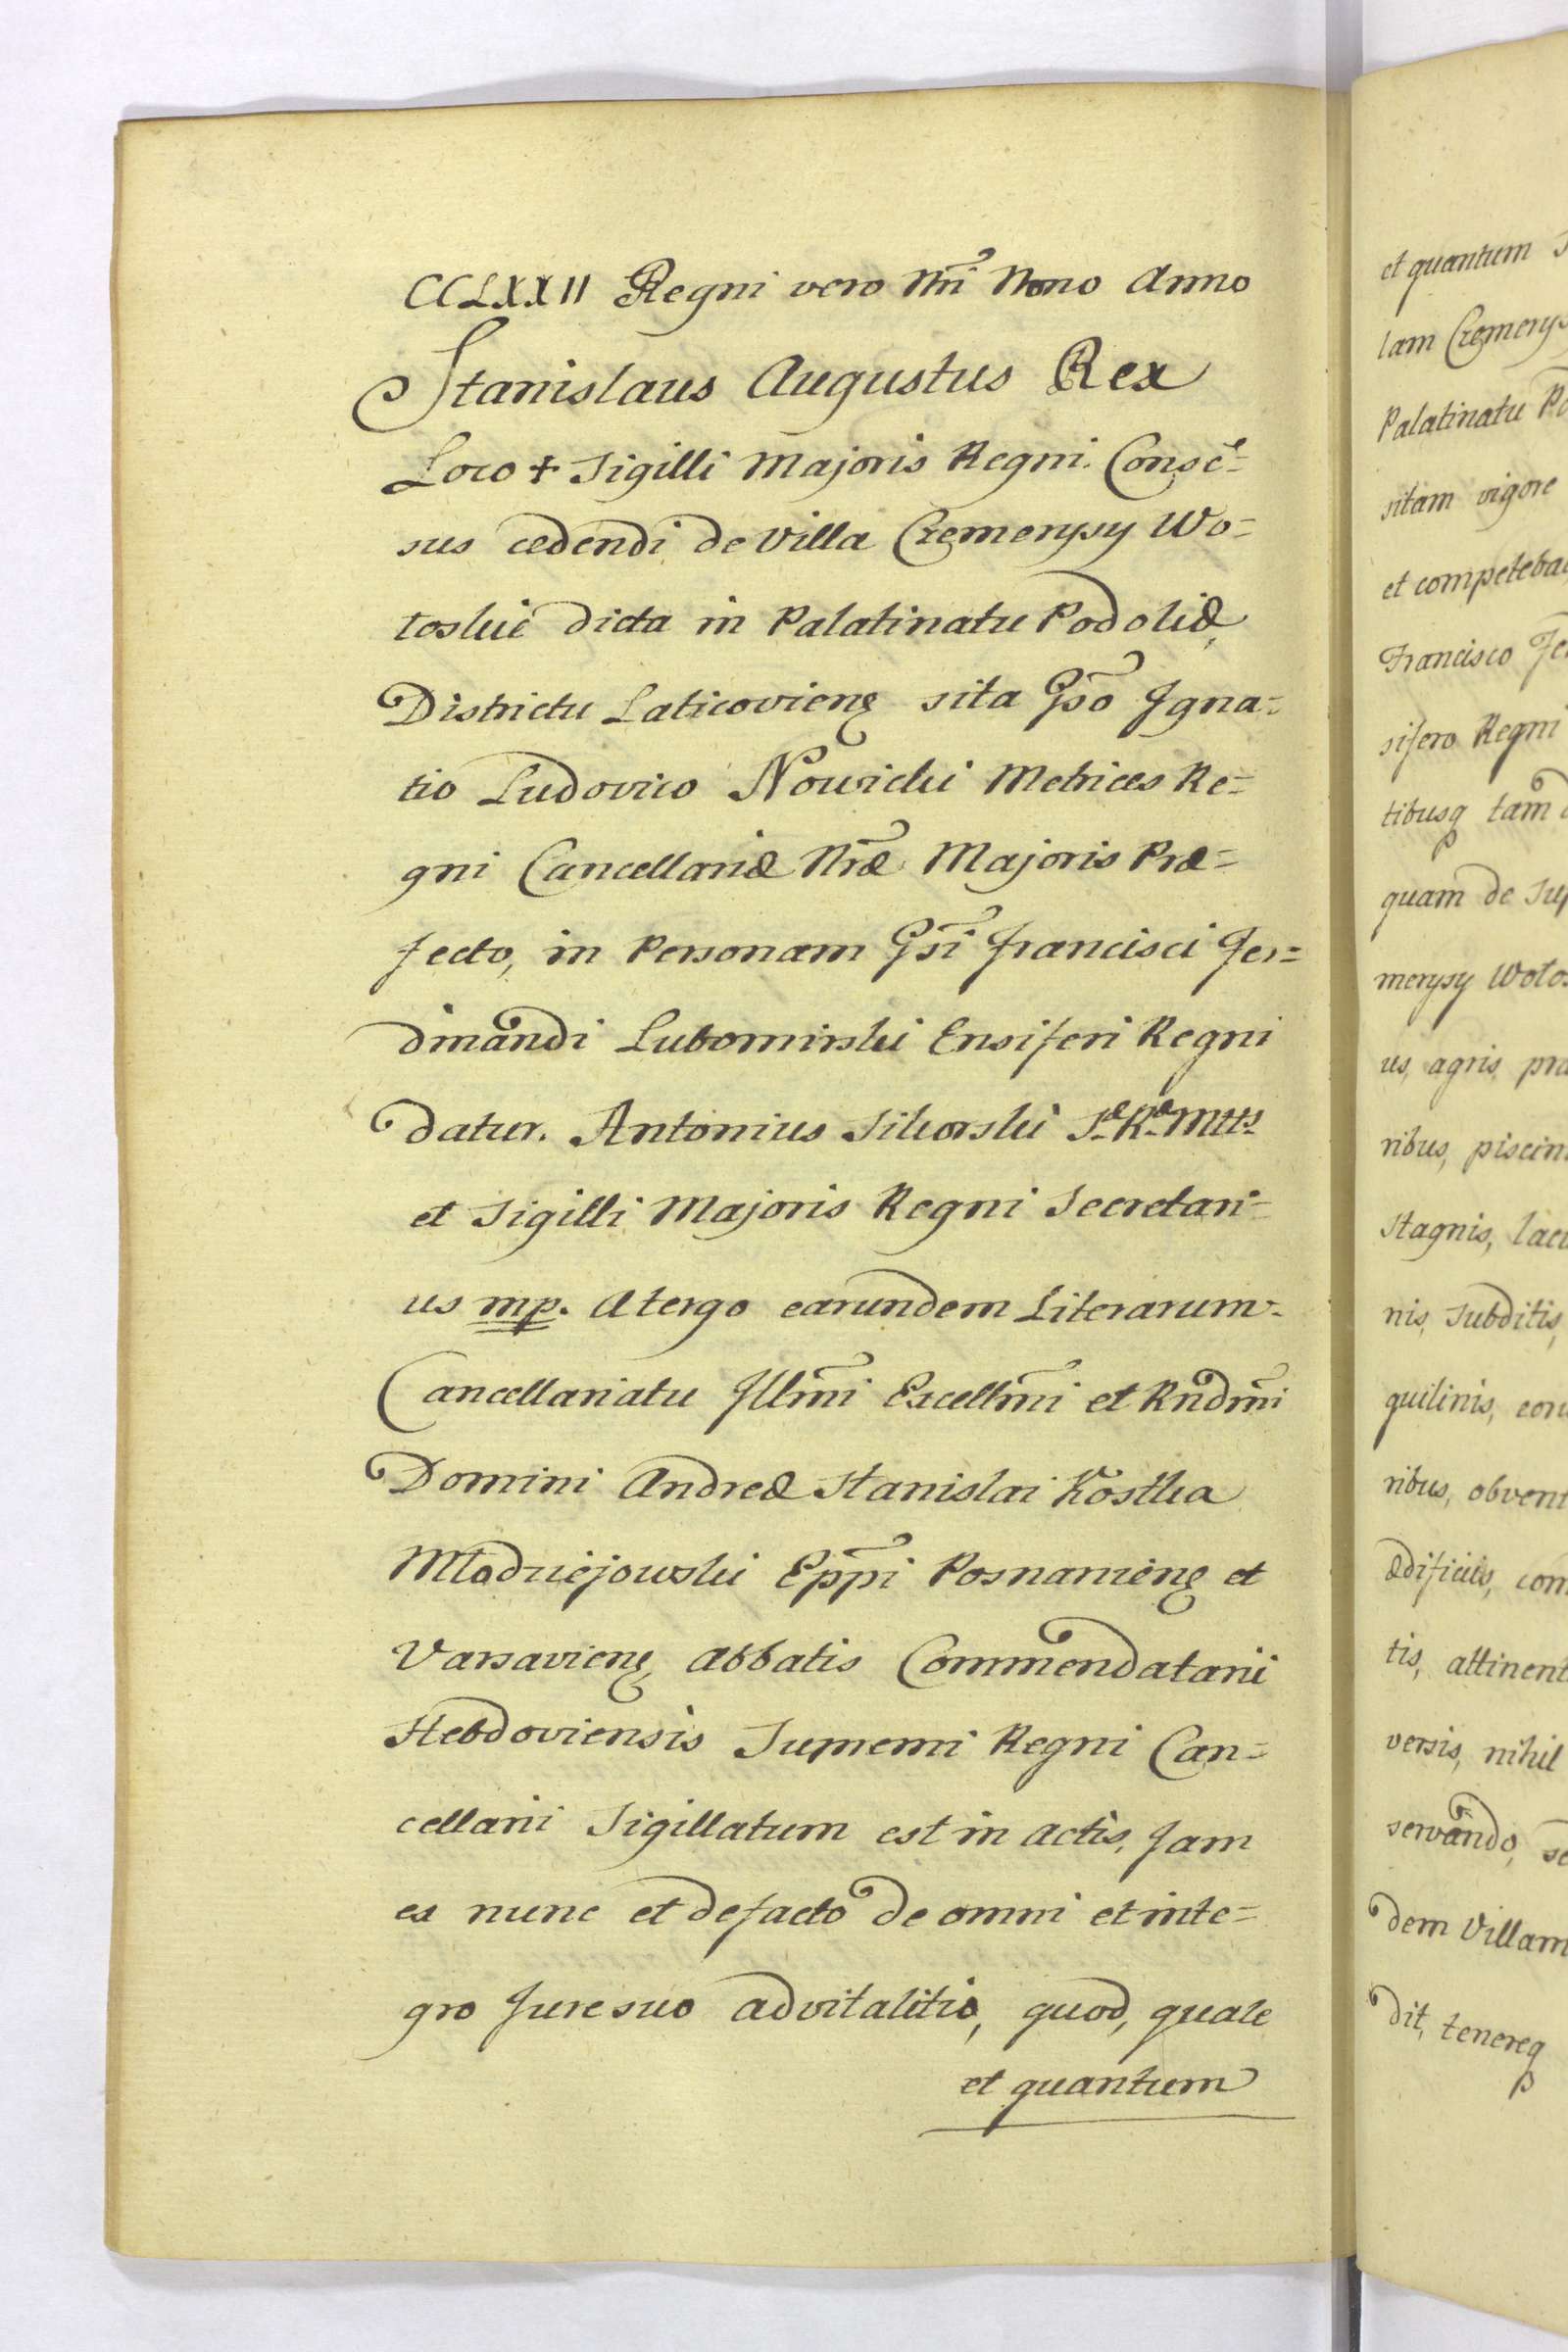 CCLXXII Regni vero Nri Nono Anno
Stanislaus Augustus Rex
Loco + Sigilli Majoris Regni. Consẽ=
sus cedendi de Villa Czemerysy Wo=
łoskie dicta in Palatinatu Podoliæ,
Districtu Laticoviens̃ sita Gso Igna=
tio Ludovico Nowicki Metrices Re=
gni Cancellariæ Nræ Majoris Præ=
fecto, in Personam Gsi Francisci Fer=
dinandi Lubomirski Ensiferi Regni
datur. Antonius Sikorski S.æ R.æ Mttis
et Sigilli Majoris Regni Secretari=
us mp. A tergo earundem Literarum.
Cancellariatu Illmi Excellmi et Rndmi
Domini Andreæ Stanislai Kostka
Młodziejowski Eppi Posnaniens̃ et
Varsaviens̃, Abbatis Commendatarii
Hebdoviensis Supremi Regni Can=
cellarii Sigillatum est in actis, Jam
ex nunc et defacto de omni et inte=
gro Jure suo advitalitio, quod, quale
et quantum
et quantum
lam Czemerys
Palatinatu Po
sitam vigore
et competeba
Francisco Fe
sifero Regni
tibusq tam
quam de Sup
merysy Woło
us, agris, pra
ribus, piscin
Stagnis, lacu
nis, Subditis,
quilinis, eoru
ribus, obvent
ædificiis, com
tis, attinent
versis, nihil
servando, se
dem Villam
dit, tenereq